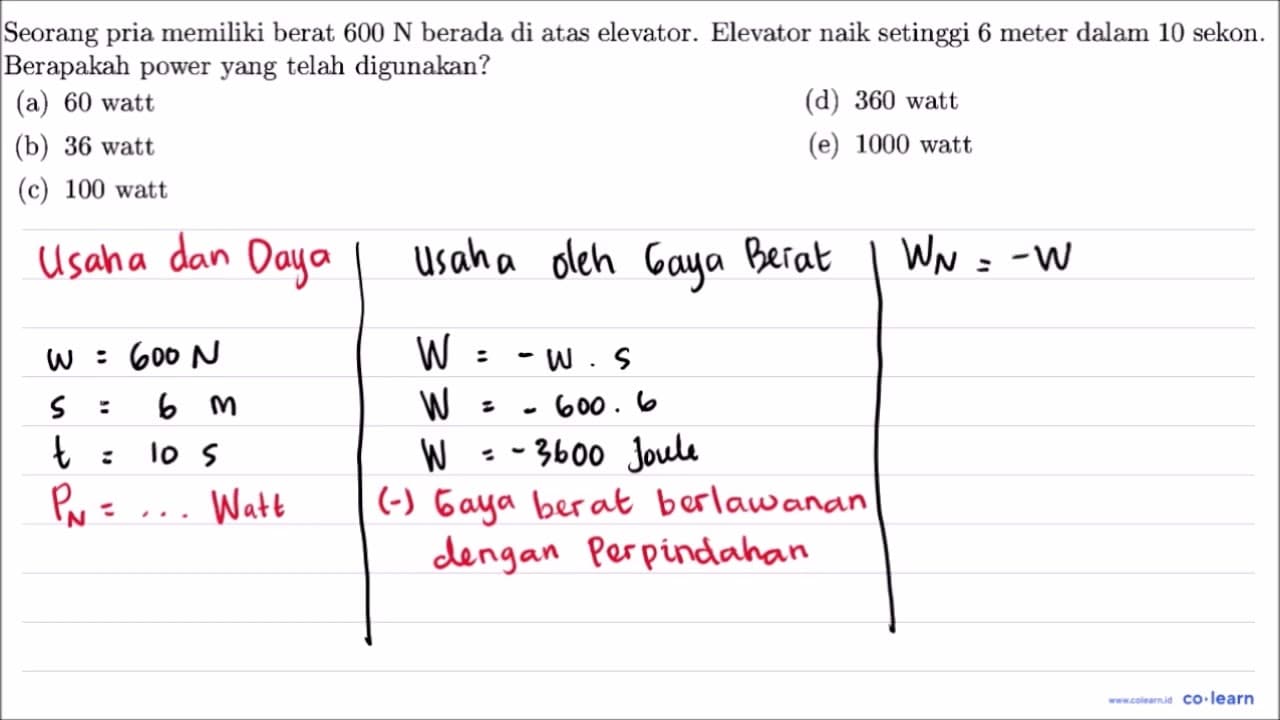 Seorang pria memiliki berat 600 N berada di atas elevator. Elevator naik setinggi 6 meter dalam 10 sekon.
Berapakah power yang telah digunakan?
(a) 60 watt
(b) 36 watt
(c) 100 watt
(d) 360 watt
(e) 1000 watt
Usaha dan Daya
w = 600 N
s = 6 m
t = 10 s
P_N = ... Watt
Usaha oleh Gaya Berat
W = - w . s
W = - 600 . 6
W = - 3600 Joule
(-) Gaya berat berlawanan
dengan Perpindahan
W_N = -W
www.colearn.id co·learn